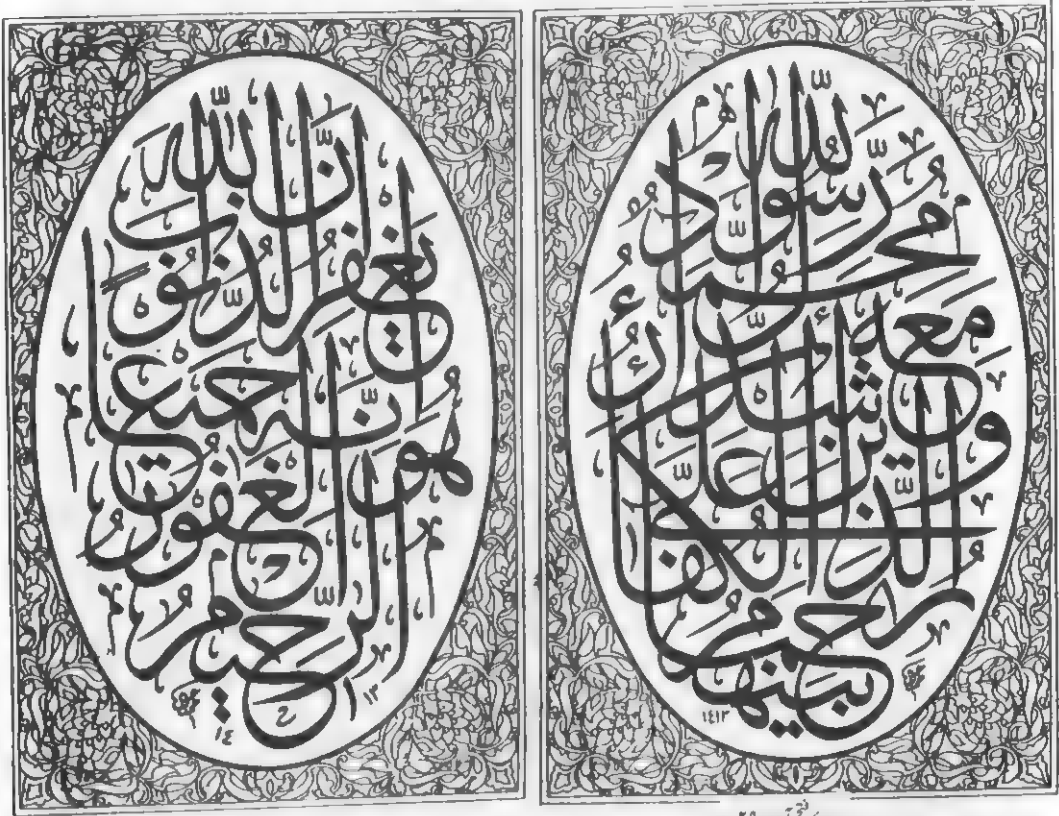 محمد رسول الله
والذين معه
أشداء على الكفار
رحماء بينهم
١٤١٣
إن الله يغفر الذنوب
جميعا
إنه هو الغفور
الرحيم
١٤١٣